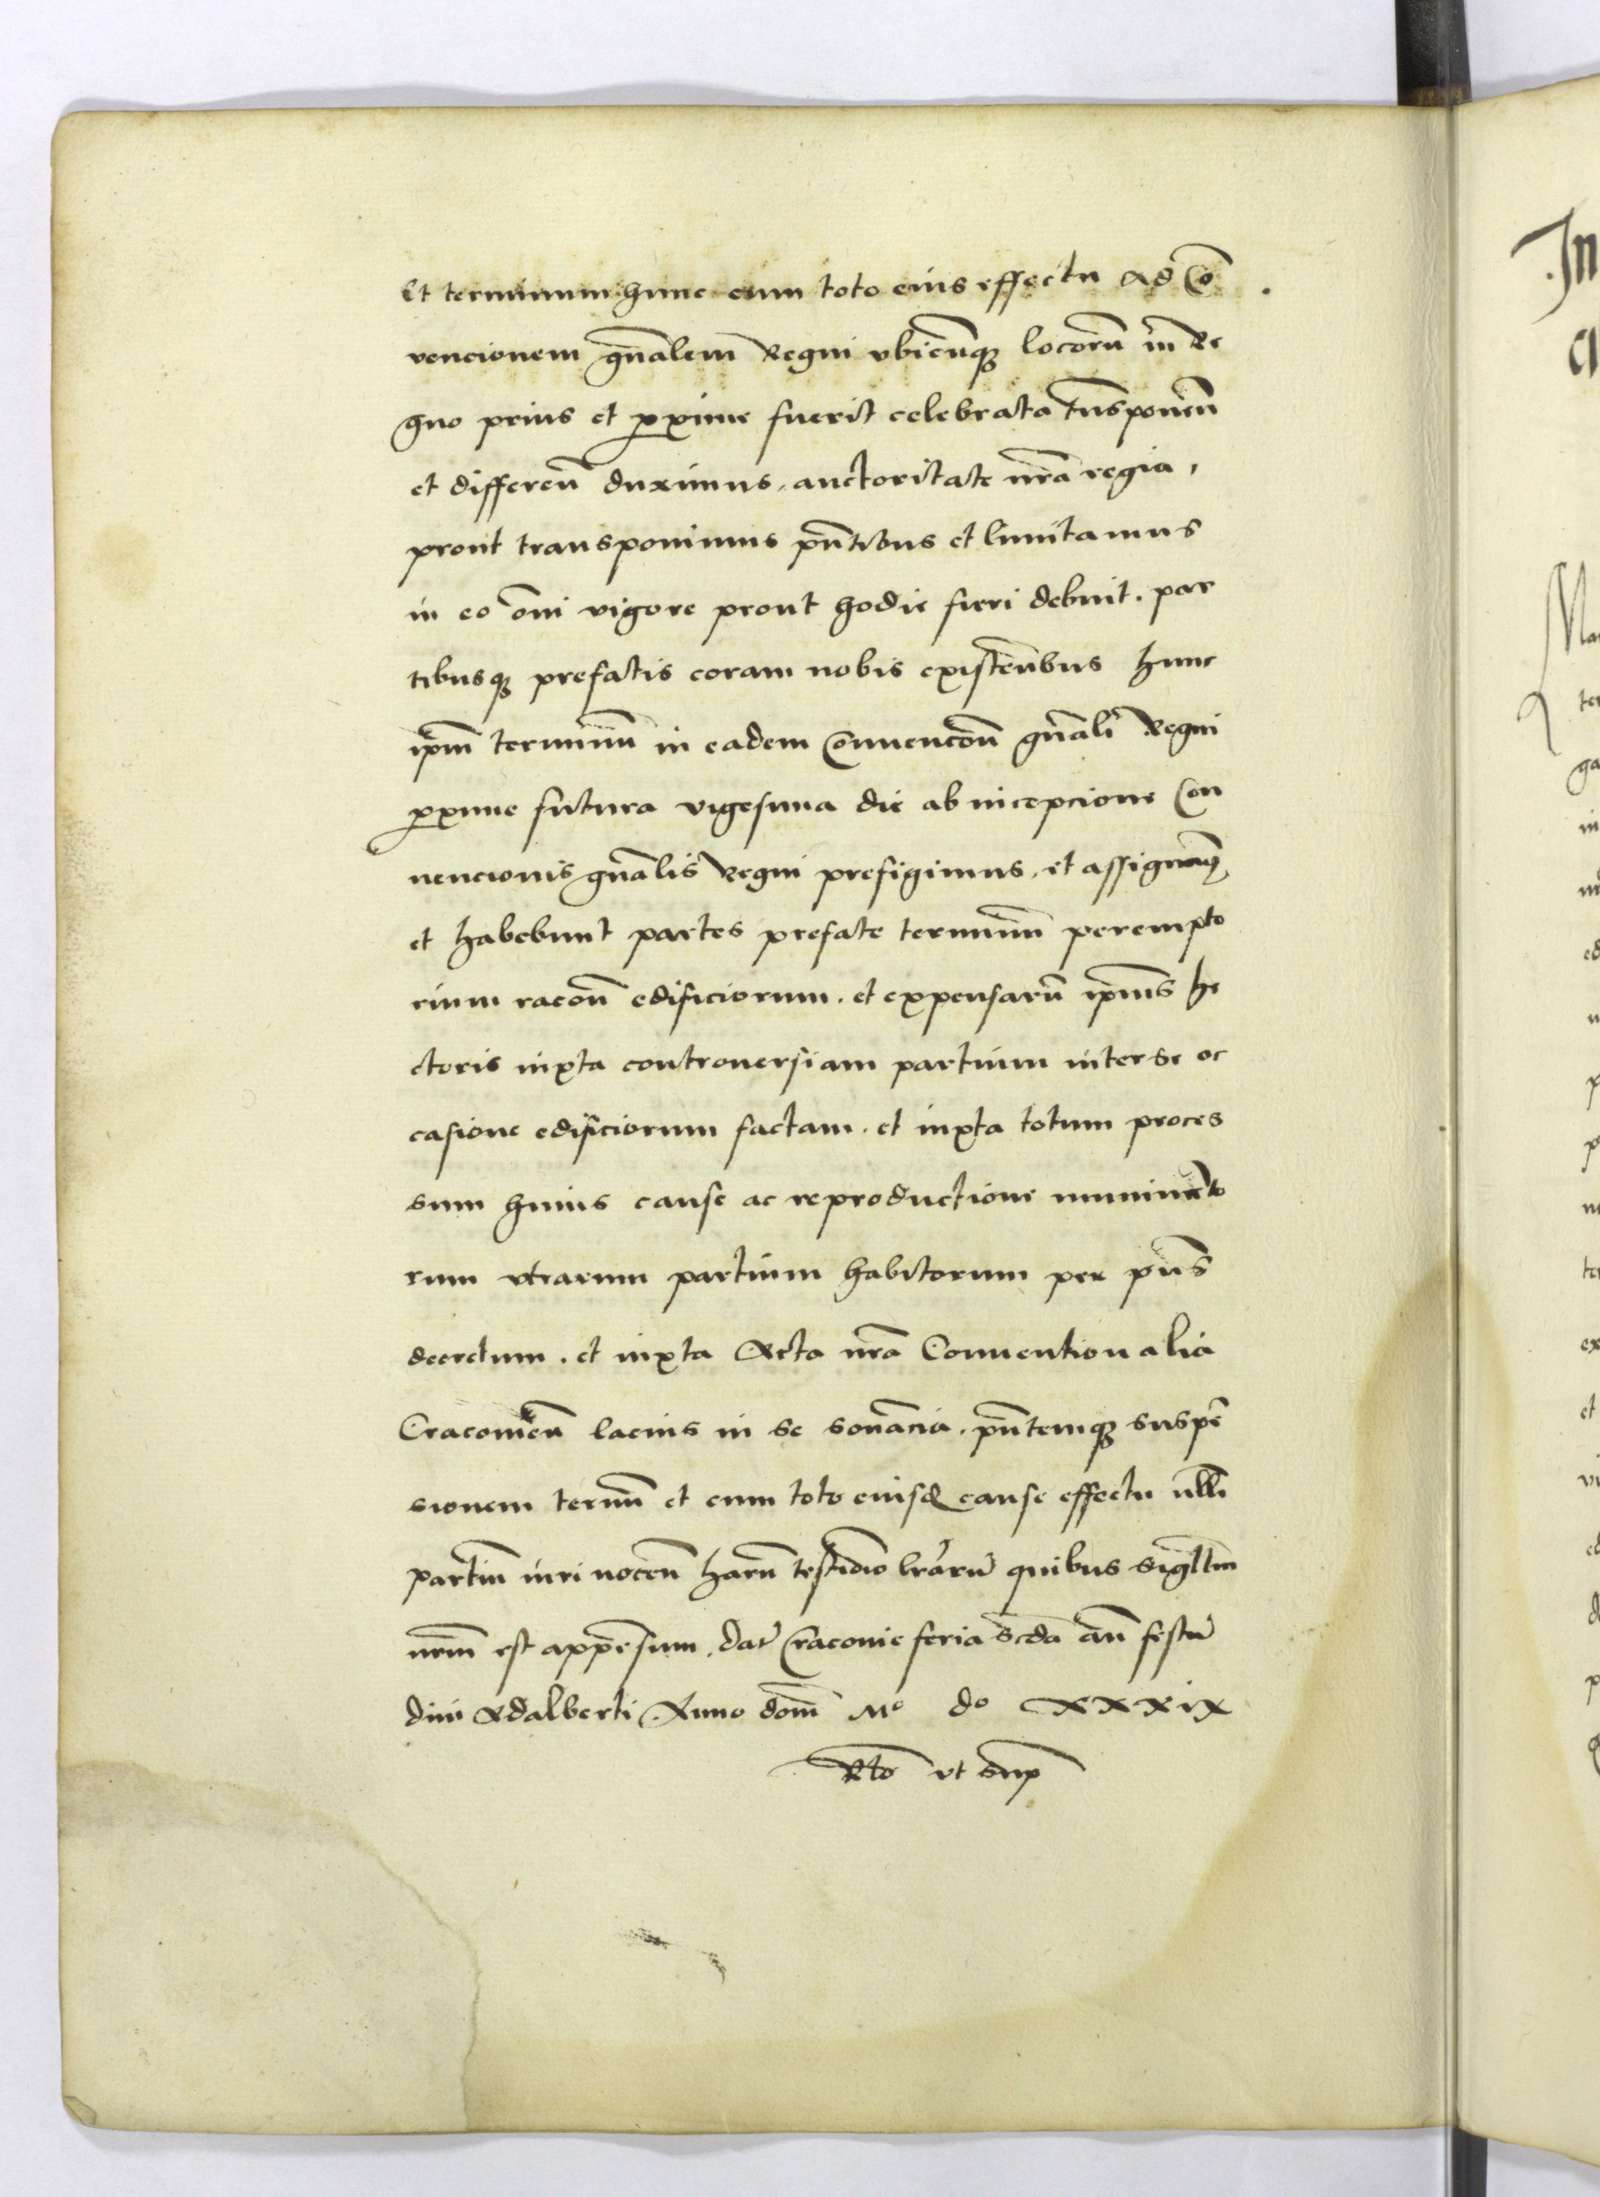 Et terminum hunc cum toto eius effectu Ad Cō
vencionem gn̄alem Regni vbicūq3 locorū in Re
gno prius et ꝓxime fuerit celebrata trn̄sponen̄
et differen̄ duximus, auctoritate nr̄a regia,
prout transponimus pn̄tibus et limitamus
in eo om̄i vigore prout hodie fieri debuit. par
tibusq3 prefatis coram nobis existen̄bus hunc
ipm̄ terminū in eadem Conuencōn gn̄ali Regni
ꝓxime futura vigesima die ab incepcione Con
uencionis gn̄alis Regni prefigimus. et assignam9
et habebunt partes prefate terminū perempto
rium racōn edificiorum. et expensarū ipsius he
ctoris iuxta controuersiam partium inter se oc
casione edificiorum factam. et iuxta totum proces
sum huius cause ac reproductione munimēto
rum vtrarum partium habitorum per pn̄s
decretum. et iuxta Acta nr̄a Conuentionalia
Cracouien̄ lacius in se sonancia. pn̄temq3 suspē
sionem termī et cum toto eiusd cause effectu nlli
partiū iuri nocen̄ harū testīdio lrārū quibus sigillm̄
nrm̄ est appēsum. dat̄ Cracouie feria scd̄a an̄ festū
diui Adalberti Anno dom̄ Mo do XXXIX
Rlō vt sup̄
In